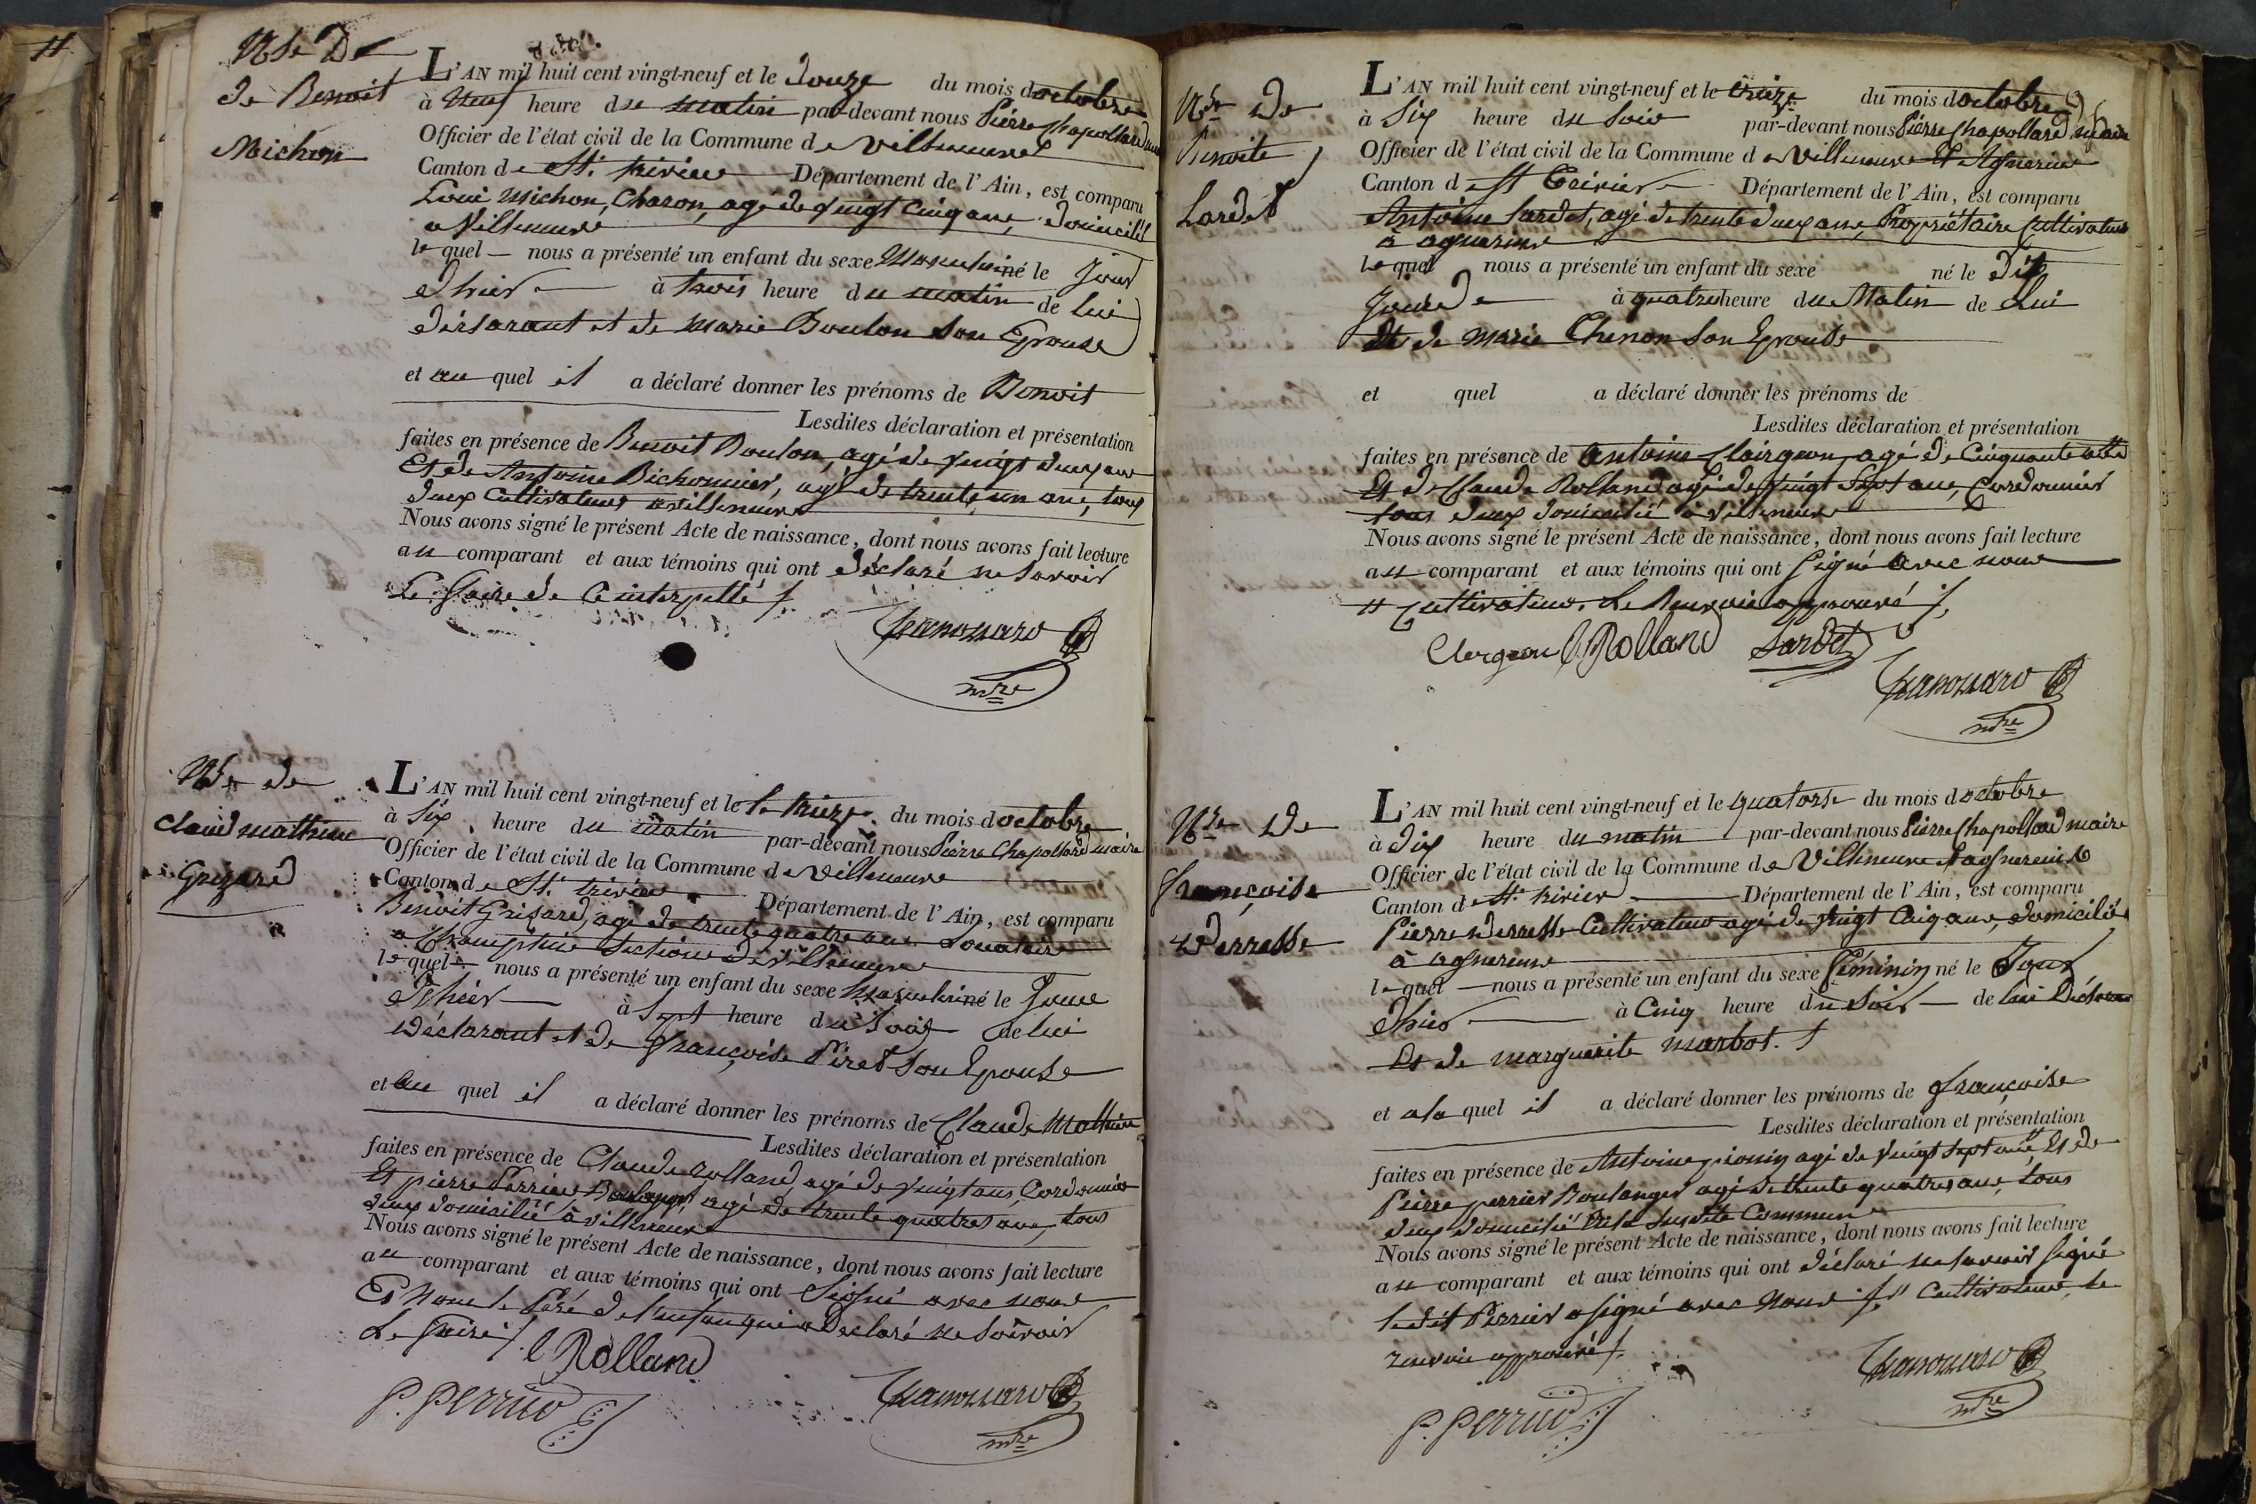 Nce De
de Benoit
Michon
L'AN mil huit cent vingt-neuf et le douze du mois d octobre
à neuf heure du matin par-devant nous Pierre Chapollard
Officier de l'état civil de la Commune de Villeneuve
Canton de St. trivier Département de l'Ain, est comparu
Loui Michon, Charon, agé de vingt cinq ans, domicilié
a Villeneuve
le quel nous a présenté un enfant du sexe Masculin né le Jour
d'hier à trois heure du matin de lui
déclarant et de Marie Boulon son Epouse
et au quel il a déclaré donner les prénoms de Benoit
Lesdites déclaration et présentation
faites en présence de Benoit Boulon, agé de vingt deux ans
Et de Antoine Bichonnier, agé de trente un ans, tous
deux Cultivateurs a villeneuve
Nous avons signé le présent Acte de naissance, dont nous avons fait lecture
au comparant et aux témoins qui ont déclaré ne savoir
Le faire de Ce interpellé
mre
Nce de
Claud mathieu
Grizard
L'AN mil huit cent vingt-neuf et le le treize du mois d octobre
à Six heure du matin par-devant nous Pierre Chapollard maire
Officier de l'état civil de la Commune de Villeneuve
Canton de St. trivier Département de l'Ain, est comparu
Benoit Grisard, agé de trente quatre ans
a Section de villeneuve
le quel nous a présenté un enfant du sexe masculin né le Jour
d'hier à Sept heure du Soir de lui
Déclarant et de françoise Piret son Epouse
et au quel il a déclaré donner les prénoms de Claude Mathieu
Lesdites déclaration et présentation
faites en présence de Claude Rolland, agé de vingt ans, Cordonnier
Et pierre Perrier Boulanger, agé de trente quatres ans, tous
deux domicilié à villeneuve
Nous avons signé le présent Acte de naissance, dont nous avons fait lecture
au comparant et aux témoins qui ont Signé avec nous
Et Non le Peré de l'enfan qui a Declaré ne Savoir
Le faire
C Rolland
P. Perrier
mre
Nce De
Benoite
Lardet
L'AN mil huit cent vingt-neuf et le treize du mois d octobre
à Six heure du Soir par-devant nous Pierre Chapollard maire
Officier de l'état civil de la Commune de Villeneuve et Agnereins
Canton de St Trivier Département de l'Ain, est comparu
Antoine Lardet, agé de trente deux ans, Propriétaire Cultivateur
à agnereins
le quel nous a présenté un enfant du sexe né le dit
Jour de à quatre heure du Matin de Lui
Et de Marie Chenon Son Epouse
et quel a déclaré donner les prénoms de
Lesdites déclaration et présentation
faites en présence de Antoine Clairgeon, agé de Cinquante
Et de Claude Rolland agé de vingt Sept ans, Cordonnier
tous deux domicilié à Villeneuve
Nous avons signé le présent Acte de naissance, dont nous avons fait lecture
au comparant et aux témoins qui ont Signé avec nous
Cultivateur. Le Renvoie approuvé
Clergeon C Rolland Lardet
mre
Nce De
françoise
Derresse
L'AN mil huit cent vingt-neuf et le quatorse du mois d octobre
à dix heure du matin par-devant nous Pierre Chapollard maire
Officier de l'état civil de la Commune de Villeneuve et agnereins
Canton de St. trivier Département de l'Ain, est comparu
Pierre Derresse Cultivateur agé de vingt Cinq ans, domicilié
à agnereins
le quel nous a présenté un enfant du sexe féminin né le Jour
d'hier à Cinq heure du Soir de lui Déclarant
Et de marguerite marbot.
et a la quel il a déclaré donner les prénoms de françoise
Lesdites déclaration et présentation
faites en présence de Antoine agé de vingt sept ans, Et de
Pierre perrier Boulanger agé de trente quatres ans, tous
deux domicilié En la Susdite Commune
Nous avons signé le présent Acte de naissance, dont nous avons fait lecture
au comparant et aux témoins qui ont déclaré ne savoir signé
le dit Perrier a signé avec Nous Cultivateur, le
renvoie approuvé
P. Perrier
mre